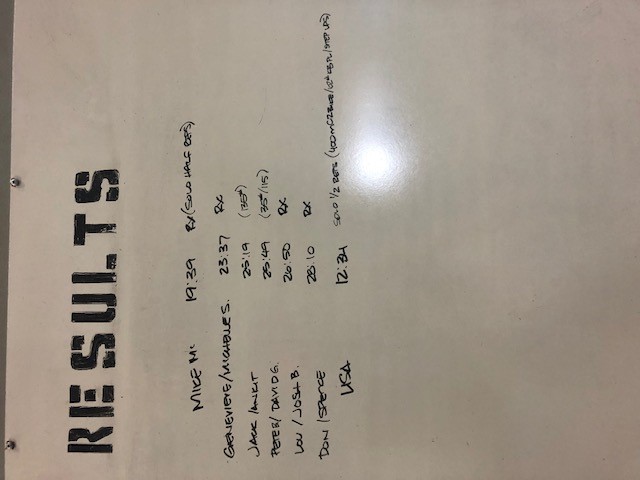 RESULTS
MIKE M. 19:39 RX (SOLO HALF REPS)
GENEVIEVE/MICHELLE S. 23:37 RX
JACK/ANKIT 25:19 (135#)
PETER/DAVID G. 25:49 (35#/115)
LOU/JOSH B. 26:50 RX
DON/SPENCE 28:10 RX
12:34 SOLO 1/2 REPS (400m C2 BIKE/ /STEP UPS)